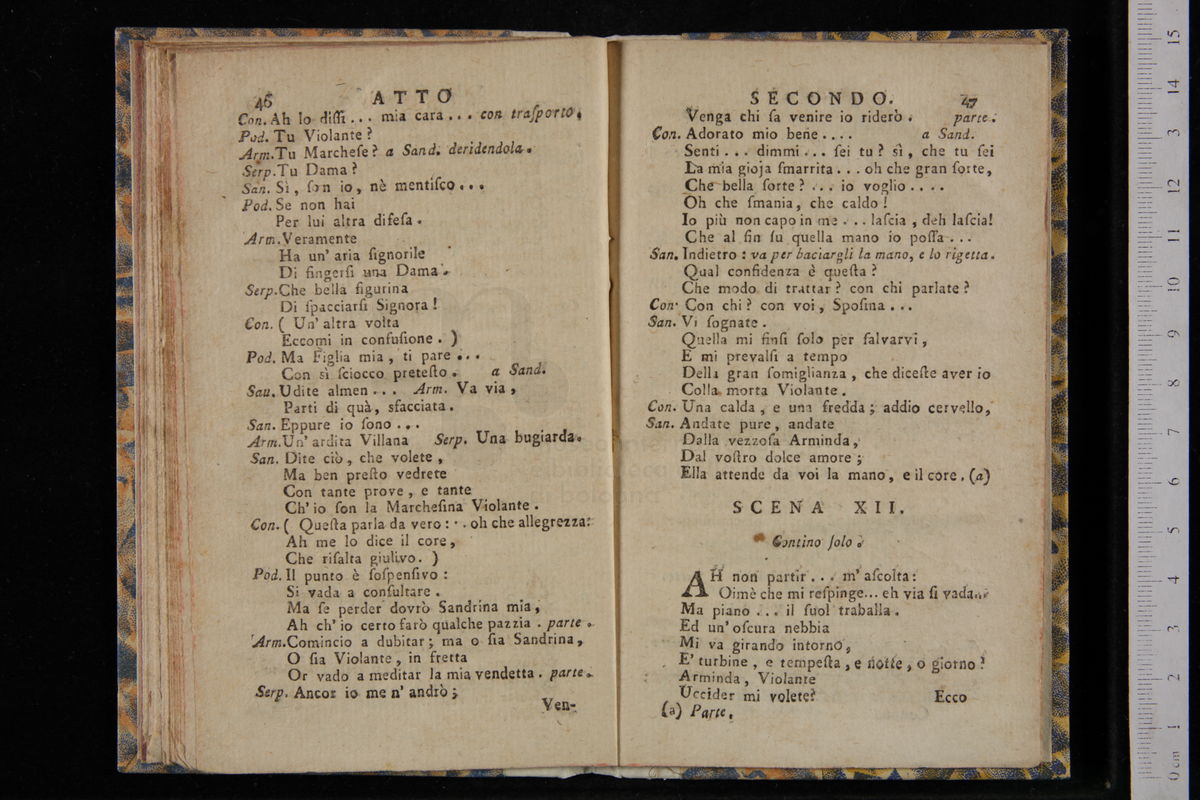 46 ATTO
Con. Ah lo diſſi... mia cara... con traſporto.
Pod. Tu Violante?
Arm. Tu Marcheſe? a Sand. deridendola.
Serp. Tu Dama?
San. Sì, ſon io, nè mentiſco...
Pod. Se non hai
Per lui altra difeſa.
Arm. Veramente
Ha un' aria ſignorile
Di fingerſi una Dama.
Serp. Che bella figurina
Di ſpacciarſi Signora!
Con. ( Un' altra volta
Eccomi in confuſione. )
Pod. Ma Figlia mia, ti pare...
Con sì ſciocco preteſto. a Sand.
San. Udite almen... Arm. Va via,
Parti di quà, sfacciata.
San. Eppure io ſono...
Arm. Un' ardita Villana Serp. Una bugiarda.
San. Dite ciò, che volete,
Ma ben preſto vedrete
Con tante prove, e tante
Ch' io ſon la Marcheſina Violante.
Con. ( Queſta parla da vero: . . oh che allegrezza:
Ah me lo dice il core,
Che riſalta giulivo. )
Pod. Il punto è ſoſpenſivo:
Si vada a conſultare.
Ma ſe perder dovrò Sandrina mia,
Ah ch' io certo farò qualche pazzia. parte.
Arm. Comincio a dubitar; ma o ſia Sandrina,
O ſia Violante, in fretta
Or vado a meditar la mia vendetta. parte.
Serp. Ancor io me n' andrò;
Ven-
SECONDO. 47
Venga chi ſa venire io riderò. parte.
Con. Adorato mio bene.... a Sand.
Senti... dimmi... ſei tu? sì, che tu ſei
La mia gioja ſmarrita... oh che gran ſorte,
Che bella ſorte?... io voglio....
Oh che ſmania, che caldo!
Io più non capo in me... laſcia, deh laſcia!
Che al fin ſu quella mano io poſſa...
San. Indietro: va per baciargli la mano, e lo rigetta.
Qual confidenza è queſta?
Che modo di trattar? con chi parlate?
Con. Con chi? con voi, Spoſina...
San. Vi ſognate.
Quella mi finſi ſolo per ſalvarvi,
E mi prevalſi a tempo
Della gran ſomiglianza, che diceſte aver io
Colla morta Violante.
Con. Una calda, e una fredda; addio cervello,
San. Andate pure, andate
Dalla vezzoſa Arminda,
Dal voſtro dolce amore;
Ella attende da voi la mano, e il core. (a)
SCENA XII.
Contino ſolo.
AH non partir... m' aſcolta:
Oimè che mi reſpinge... eh via ſi vada...
Ma piano... il ſuol traballa.
Ed un' oſcura nebbia
Mi va girando intorno,
E' turbine, e tempeſta, e notte, o giorno?
Arminda, Violante
Uccider mi volete? Ecco
(a) Parte.
0 cm 1 2 3 4 5 6 7 8 9 10 11 12 13 14 15